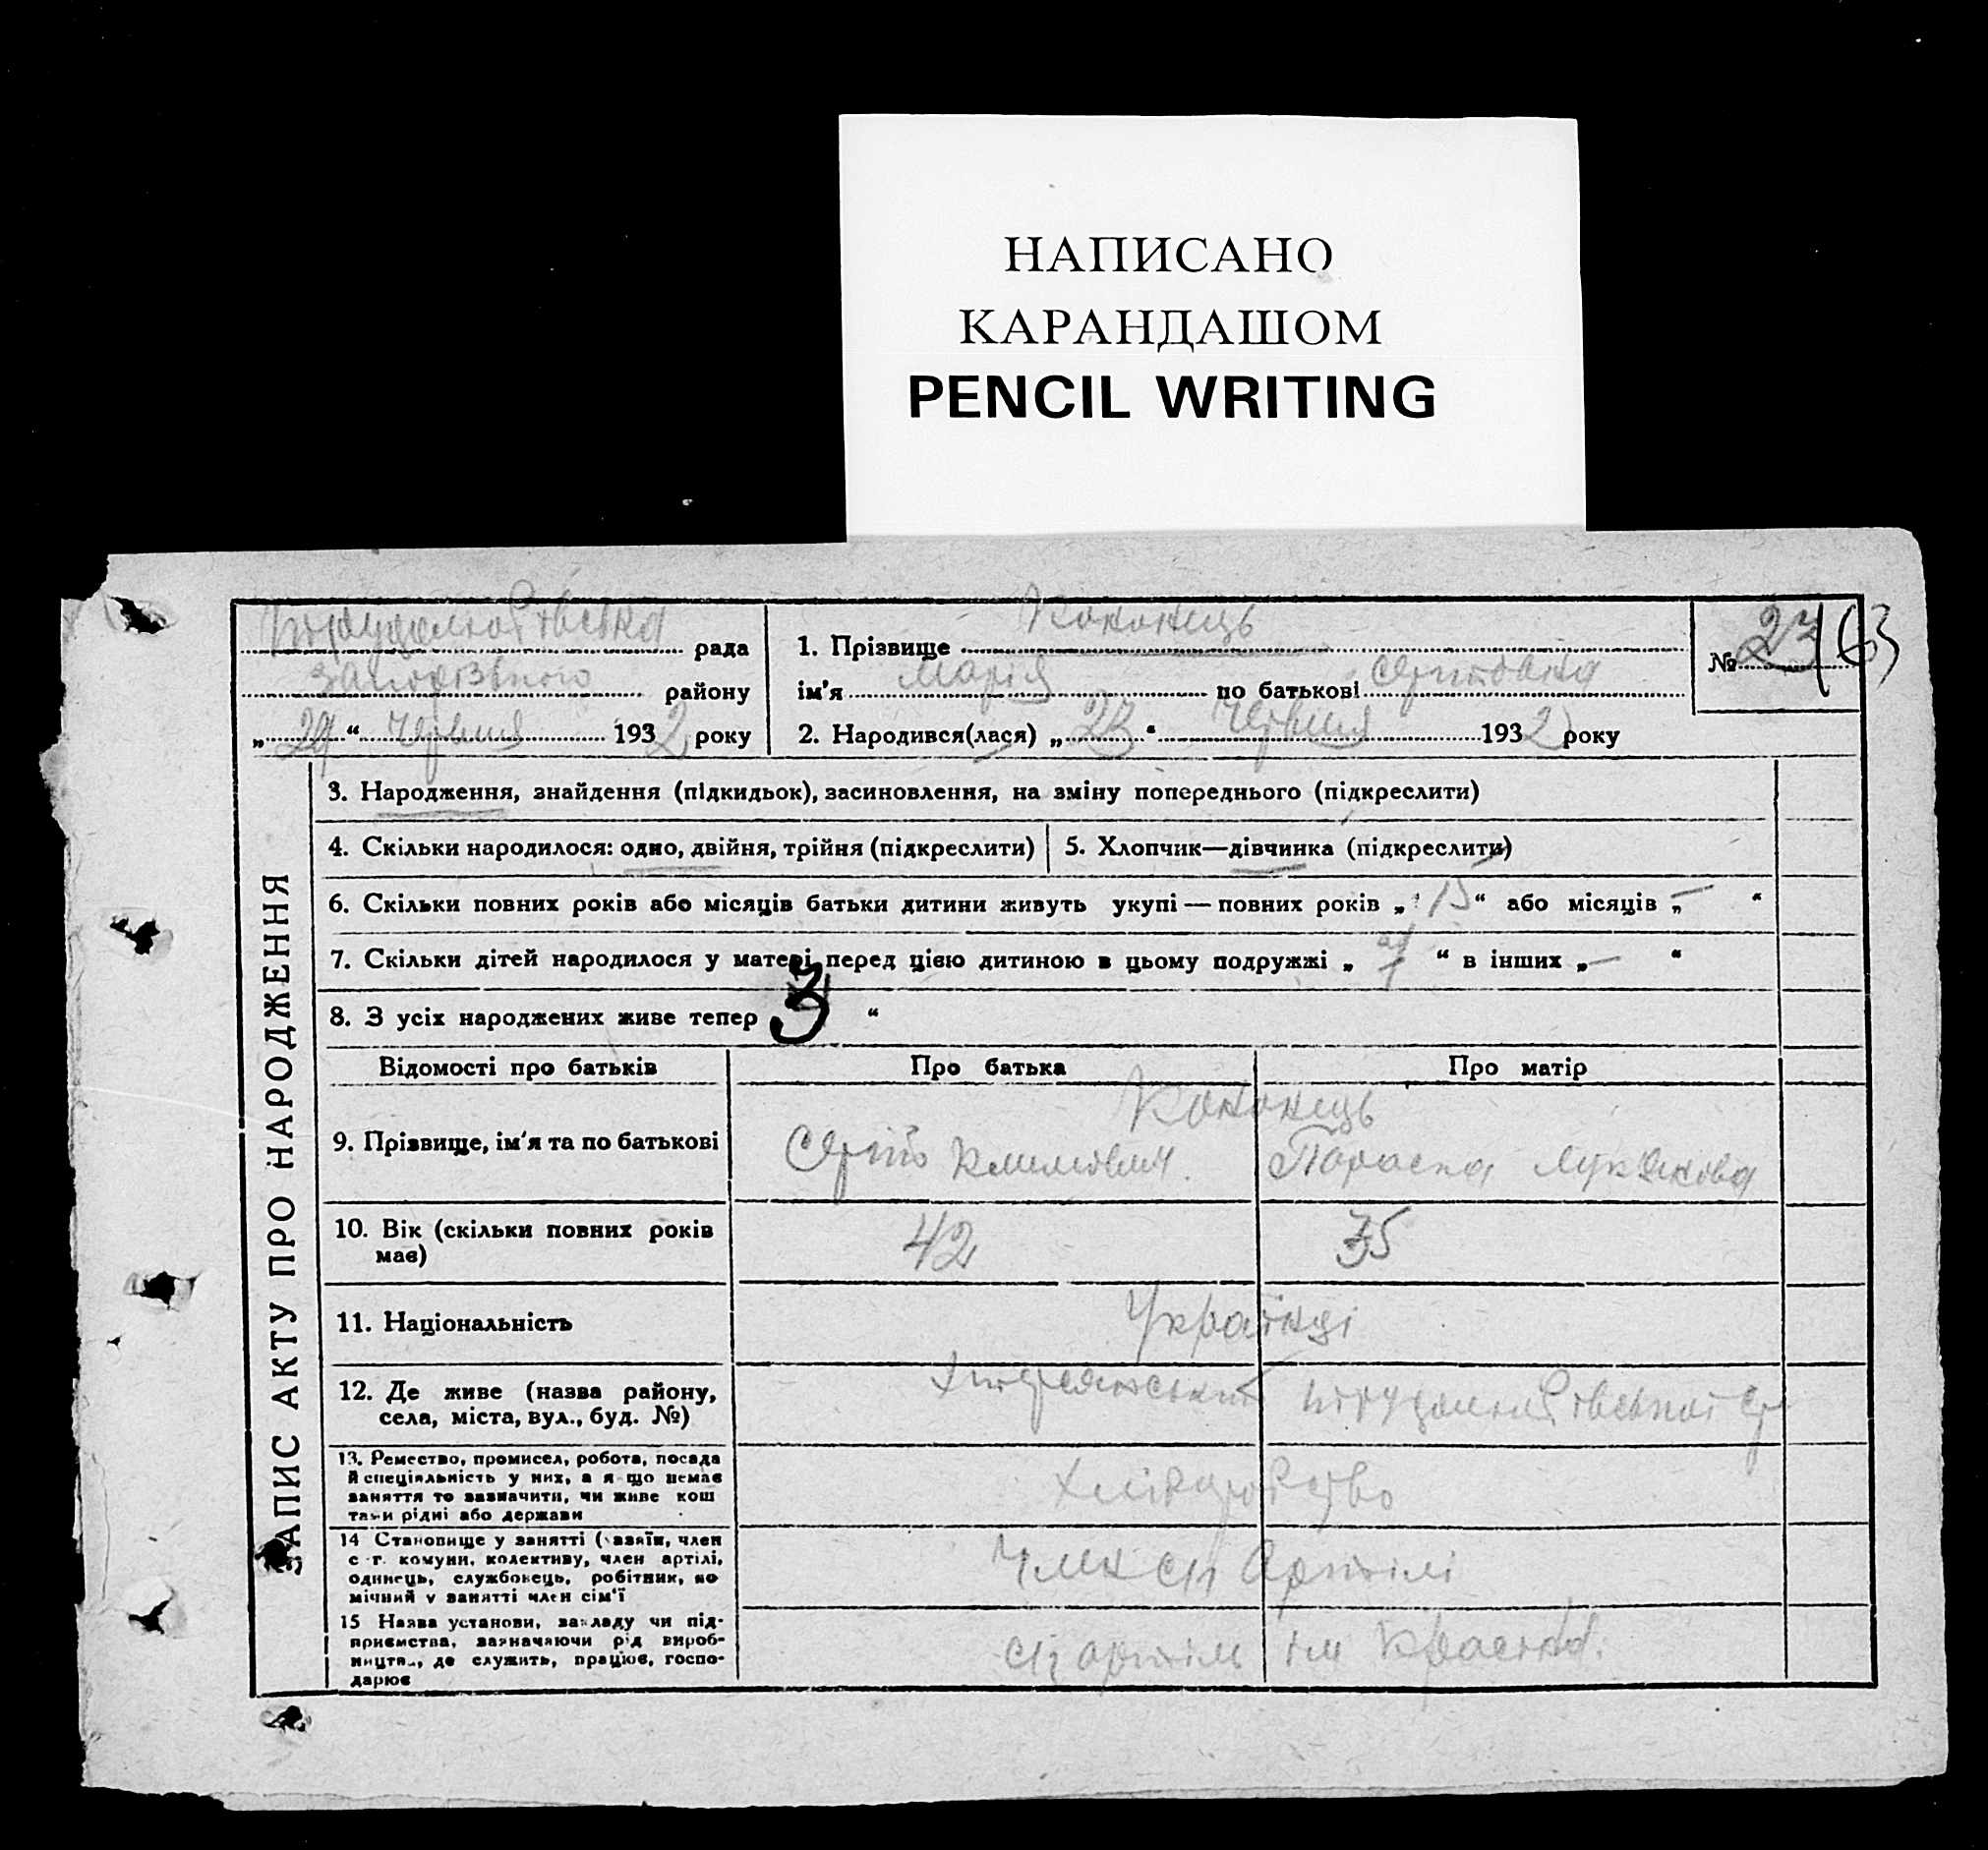 НАПИСАНО
КАРАНДАШОМ
PENCIL WRITING
рада
району
„29“ Червня 1932 року
1. Прізвище Кононець
ім'я Марія по батькові Сергіївна
2. Народився(лася) „23“ Червня 1932 року
№
ЗАПИС АКТУ ПРО НАРОДЖЕННЯ
3. Народження, знайдення (підкидьок), засиновлення, на зміну попереднього (підкреслити)
4. Скільки народилося: одно, двійня, трійня (підкреслити)
5. Хлопчик—дівчинка (підкреслити)
6. Скільки повних років або місяців батьки дитини живуть укупі — повних років „15“ або місяців „—“
7. Скільки дітей народилося у матері перед цією дитиною в цьому подружжі „ “ в інших „—“
8. З усіх народжених живе тепер 3 “
Відомості про батьків
Про батька
Про матір
9. Прізвище, ім'я та по батькові
Кононець
Сергій Климович.
Параска Лук'янова
10. Вік (скільки повних років
має)
42
35
11. Національність
Українці
12. Де живе (назва району,
села, міста, вул., буд. №)
13. Ремество, промисел, робота, посада
й спеціяльність у них, а якщо немає
заняття то зазначити, чи живе кош
тами рідні або держави
Хліборобство
14 Становище у занятті (хазяїн, член
с.-г. комуни, колективу, член артілі,
одинець, службовець, робітник, по
мічний у занятті член сім'ї
Член СГ Артілі
15 Назва установи, закладу чи під-
приємства, зазначаючи рід вироб-
ництва, де служить, працює, госпо-
дарює
СГ артіль ім